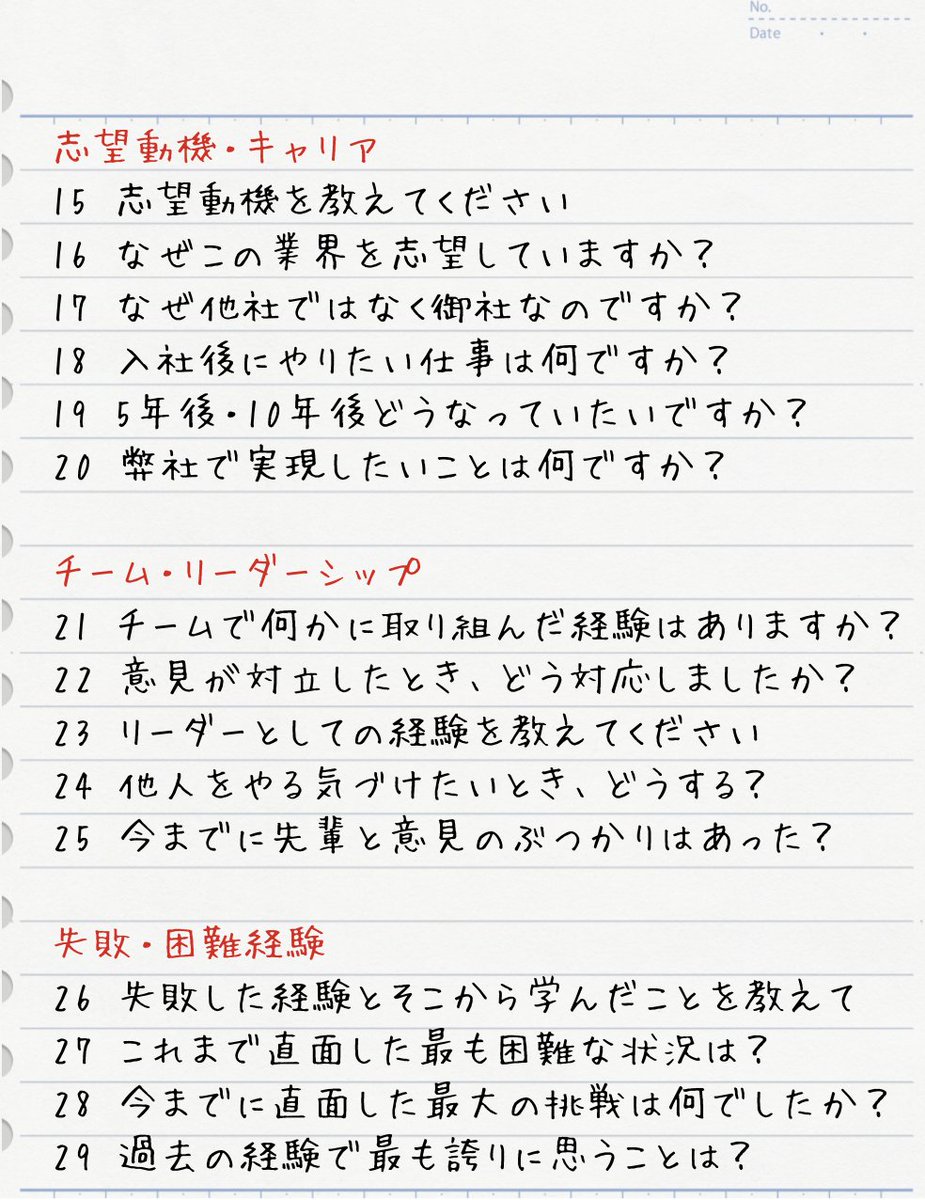 No.
Date
志望動機・キャリア
15 志望動機を教えてください
16 なぜこの業界を志望していますか？
17 なぜ他社ではなく御社なのですか？
18 入社後にやりたい仕事は何ですか？
19 5年後・10年後どうなっていたいですか？
20 弊社で実現したいことは何ですか？
チーム・リーダーシップ
21 チームで何かに取り組んだ経験はありますか？
22 意見が対立したとき、どう対応しましたか？
23 リーダーとしての経験を教えてください
24 他人をやる気づけたいとき、どうする？
25 今までに先輩と意見のぶつかりはあった？
失敗・困難経験
26 失敗した経験とそこから学んだことを教えて
27 これまで直面した最も困難な状況は？
28 今までに直面した最大の挑戦は何でしたか？
29 過去の経験で最も誇りに思うことは？